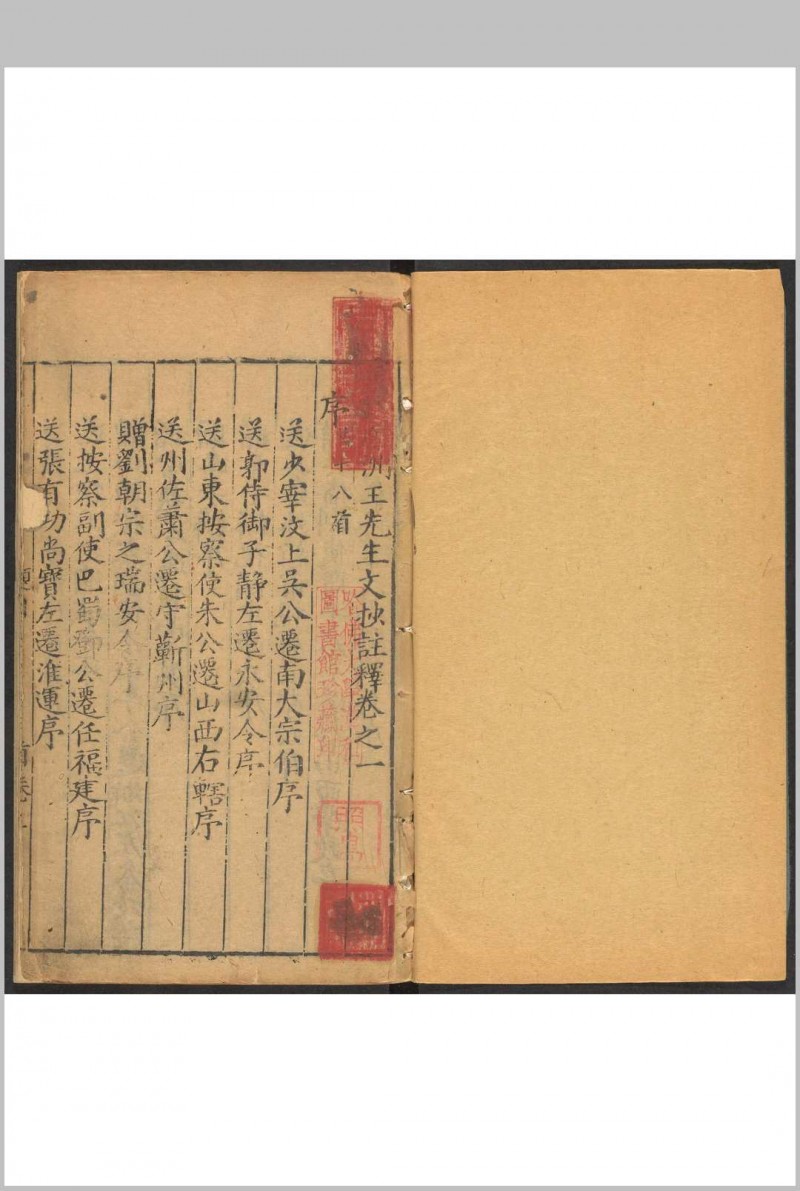 洲王先生文抄註釋卷之一
序 十八首
送少宰汶上吳公遷南大宗伯序
送郭侍御子靜左遷永安令序
送山東按察使朱公遷山西右轄序
送州佐蕭公遷守蘄州序
贈劉朝宗之瑞安令序
送按察副使巴蜀鄧公遷任福建序
送張有功尚寶左遷淮運序
圖書館珍藏印